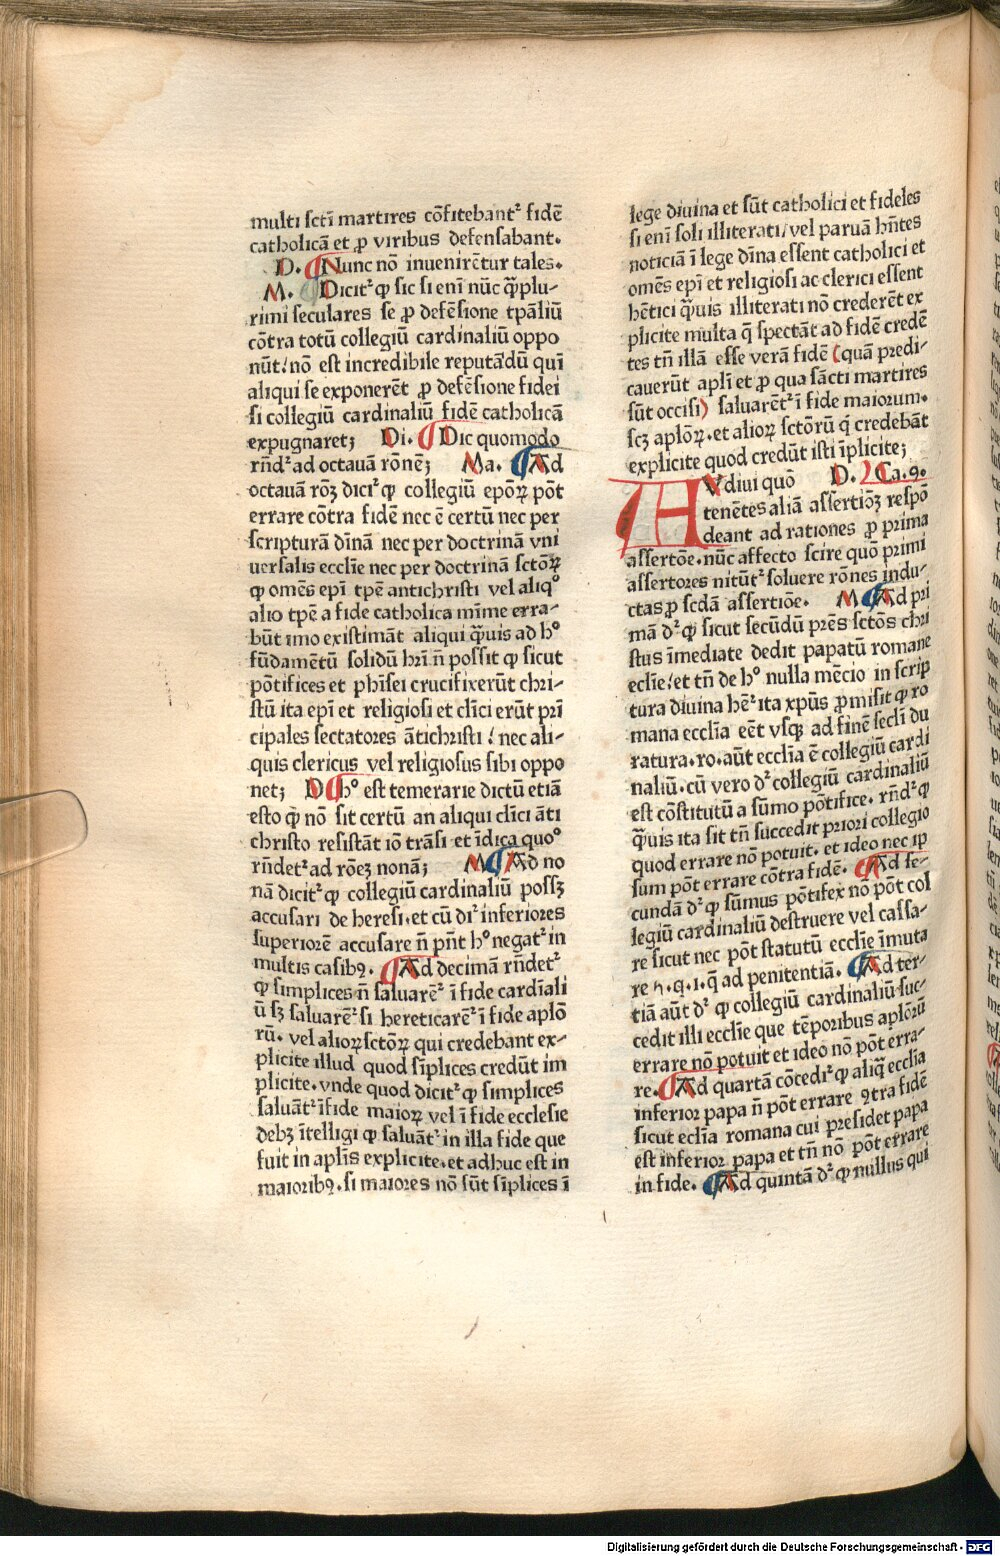 multi sctī martires cōfitebantᷣ fidē
catholicā et ꝓ viribus defensabant.
D. ¶Nunc nō inuenirētur tales.
M. ¶Dicitᷣ ꝙ sic si enī nūc q̄plu-
rimi seculares se ꝓ defēsione tpāliū
cōtra totū collegiū cardinaliū oppo
nūt: nō est incredibile reputādū quī
aliqui se exponerēt ꝓ defēsione fidei
si collegiū cardinaliū fidē catholicā
expugnaret; Di. ¶Dic quomodo
rn̄dᷣ ad octauā rōnē; Ma. ¶Ad
octauā rōꝫ diciᷣ ꝙ collegiū epōꝝ pōt
errare cōtra fidē nec ē certū nec per
scripturā dīnā nec per doctrinā vni
uersalis ecclīe nec per doctrinā sctōꝝ
ꝙ omēs epī tpē antichristi vel aliqᵒ
alio tpē a fide catholica mīme erra-
būt imo existimāt aliqui q̄uis ad hᵒ
fūdamētū solidū hrī n̄ possit ꝙ sicut
pōtifices et phīsei crucifixerūt chri-
stū ita epī et religiosi et clīci erūt prī
cipales sectatores ātichristi: nec ali-
quis clericus vel religiosus sibi oppo
net; D ¶hᵒ est temerarie dictū etiā
esto ꝙ nō sit certū an aliqui clīci āti
christo resistāt iō trāsi et īdica quoᵒ
rn̄detᷣ ad rōeꝫ nonā; M ¶Ad no
nā dicitᷣ ꝙ collegiū cardinaliū possꝫ
accusari de heresi. et cū diᷣ inferiores
superiorē accusare n̄ pn̄t hᵒ negatᷣ in
multis casibꝰ. ¶Ad decimā rn̄detᷣ
ꝙ simplices n̄ saluarēᷣ ī fide cardīali
ū sꝫ saluarēᷣ si hereticarēᷣ ī fide aplō
rū. vel alioꝝ sctōꝝ qui credebant ex-
plicite illud quod sīplices credūt im
plicite. vnde quod dicitᷣ ꝙ simplices
saluātᷣ īfide maioꝝ vel ī fide ecclesie
debꝫ ītelligi ꝙ saluātᷣ in illa fide que
fuit in aplīs explicite. et adhuc est in
maioribꝰ. si maiores nō sūt sīplices ī
lege diuina et sūt catholici et fideles
si enī soli illiterati, vel paruā hn̄tes
noticiā ī lege dīna essent catholici et
omēs epī et religiosi ac clerici essent
hētici q̄uis illiterati nō crederēt ex
plicite multa q̄ spectāt ad fidē credē
tes tn̄ illā esse verā fidē (quā predi-
cauerūt aplī et ꝓ qua sācti martires
sūt occisi) saluarētᷣ ī fide maiorum.
scꝫ aplōꝝ. et alioꝝ sctōrū q̄ credebāt
explicite quod credūt isti īplicite;
AVdiui quō D. Ca. 9.
tenētes aliā assertiōꝫ respō
deant ad rationes ꝓ prima
assertōe. nūc affecto scire quō primi
assertores nitūtᷣ soluere rōnes indu-
ctas ꝓ scdā assertiōe. M ¶Ad pri
mā dᷣ ꝙ sicut secūdū prēs sctōs chri
stus īmediate dedit papatū romane
eclīe: et tn̄ de hᵒ nulla mēcio in scrip
tura diuina hēᷣ ita xpūs ꝓmisit ꝙ ro
mana ecclīa eēt vsqꝫ ad finē seclī du
ratura. ro. aūt ecclīa ē collegiū cardi
naliū. cū vero dᷣ collegiū cardinaliū
est cōstitutū a sūmo pōtifice. rn̄dᷣ ꝙ
q̄uis ita sit tn̄ succedit priori collegio
quod errare nō potuit. et ideo nec ip
sum pōt errare cōtra fidē. ¶Ad se-
cundā dᷣ ꝙ sūmus pōtifex nō pōt col
legiū cardinaliū destruere vel cassa-
re sicut nec pōt statutū ecclīe īmuta
re n. q. i. q̄ ad penitentiā. ¶Ad ter-
tiā aūt dᷣ ꝙ collegiū cardinaliū suc-
cedit illi ecclīe que tēporibus aplōrū
errare nō potuit et ideo nō pōt erra-
re. ¶Ad quartā cōcediᷣ ꝙ aliq̄ ecclīa
inferior papa n̄ pōt errare ꝯtra fidē
sicut eclīa romana cui presidet papa
est inferior papa et tn̄ nō pōt errare
in fide. ¶Ad quintā dᷣ ꝙ nullus qui
Digitalisierung gefördert durch die Deutsche Forschungsgemeinschaft - DFG